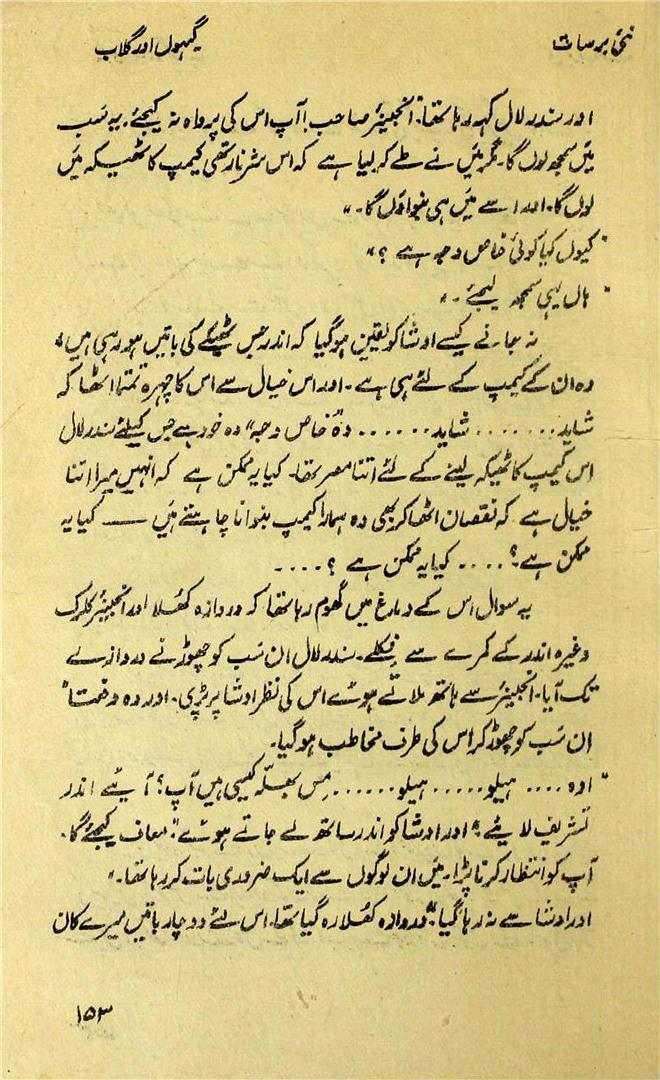 نئی برسات
گیہوں اور گلاب
اور سندر لال کہہ رہا تھا "انجینیئر صاحب! آپ اس کی پرواہ نہ کیجئے۔ یہ سَب
میَں سمجھ لوں گا۔ مگر میَں نے طے کر لیا ہے کہ اس شرنارتھی کیمپ کا ٹھیکہ میَں
لوں گا۔ اور اسے میَں ہی بنواؤں گا۔"
"کیوں کیا کوئی خاص وجہ ہے ؟"
"ہاں یہی سمجھ لیجئے۔"
نہ جانے کیسے اوشا کو یقین ہو گیا کہ اندر جس ٹھیکے کی باتیں ہو رہی ہیں،
وہ ان کے کیمپ کے لئے ہی ہے۔ اور اس خیال سے اس کا چہرہ تمتما اٹھا کہ
شاید ....... شاید ...... وہ "خاص وجہ" وہ خود ہے جس کیلئے سندر لال
اس کیمپ کا ٹھیکہ لینے کے لئے اتنا مصر تھا۔ کیا یہ ممکن ہے کہ انہیں میرا اتنا
خیال ہے کہ نقصان اٹھا کر بھی وہ ہمارا کیمپ بنوانا چاہتے ہیں —— کیا یہ
ممکن ہے؟ .... کیا یہ ممکن ہے ؟ ....
یہ سوال اس کے دماغ میں گھوم رہا تھا کہ دروازہ کھُلا اور انجینیئر کلرک
وغیرہ اندر کے کمرے سے نِکلے۔ سندر لال ان سَب کو چھوڑنے دروازے
تک آیا۔ انجینیئر سے ہاتھ ملاتے ہوئے اس کی نظر اوشا پر پڑی۔ اور وہ دفعتاً
اِن سَب کو چھوڑ کر اس کی طرف مخاطب ہو گیا۔
"اوہ .... ہیلو ..... ہیلو ...... مِس بھلّہ کیسی ہیں آپ؟ آیئے اندر
تشریف لایئے" اور اوشا کو اندر ساتھ لے جاتے ہوئے "معاف کیجئے گا۔
آپ کو انتظار کرنا پڑا۔ میَں ان لوگوں سے ایک ضروری بات کر رہا تھا۔"
اور اوشا سے نہ رہا گیا "دروازہ کھُلا رہ گیا تھا۔ اس لئے دو چار باتیں میرے کان
۱۵۳